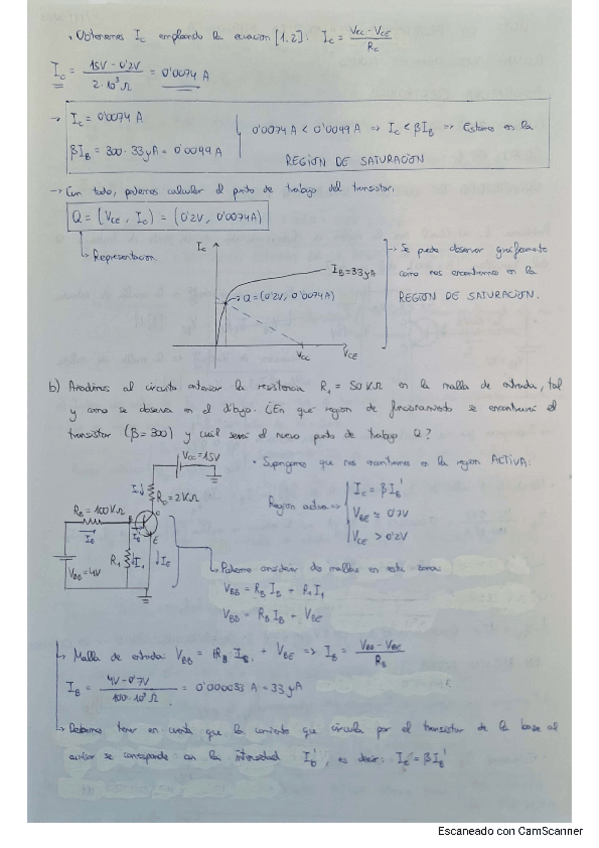 → Obtenemos Ic empleando la ecuación [1.2]: Ic = (Vcc - VCE) / Rc
Ic = (15V - 0'2V) / (2·10³Ω) = 0'0074 A
→ Ic = 0'0074 A
βIB = 300 · 33μA = 0'0099 A
0'0074 A < 0'0099 A => Ic < βIB => Estamos en la
REGIÓN DE SATURACIÓN
→ Con todo, podemos calcular el punto de trabajo del transistor.
Q = (VCE, Ic) = (0'2V, 0'0074A)
Representación.
Ic
IB = 33μA
Q = (0'2V, 0'0074A)
Vcc
VCE
→ Se puede observar gráficamente
cómo nos encontramos en la
REGIÓN DE SATURACIÓN.
b) Anadimos al circuito anterior la resistencia R1 = 50KΩ en la malla de entrada, tal
y como se observa en el dibujo. ¿En qué región de funcionamiento se encontrará el
transistor (β = 300) y cuál será el nuevo punto de trabajo Q?
Vcc = 15V
Ic
Rc = 2KΩ
RB = 100KΩ
IB
IB'
C
B
E
R1
I1
IE
VBB = 4V
• Supongamos que nos encontramos en la región ACTIVA:
Región activa =>
Ic = βIB'
VBE = 0'7V
VCE > 0'2V
→ Podemos considerar dos mallas en esta zona:
VBB = RB IB + R1 I1
VBB = RB IB + VBE
→ Malla de entrada: VBB = RB IB + VBE => IB = (VBB - VBE) / RB
IB = (4V - 0'7V) / (100·10³Ω) = 0'000033 A = 33 μA
→ Debemos tener en cuenta que la corriente que circula por el transistor de la base al
emisor se corresponde con la intensidad IB', es decir: Ic = βIB'
Escaneado con CamScanner